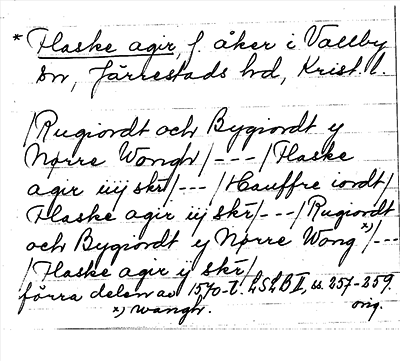 * Flaske agir, f. åker i Vallby
sn, Järrestads hd, Krist. l.
/Rugiordt och Bygiordt y
Nørre Wongh/---/Flaske
agir iiij skr/---/Hauffre iordt/
Flaske agir iij skr/---/Rugiordt
och Bygiordt y Nørre Wong x)/---
/Flaske agir y skr/
förra delen av 1570-t. LSLB II, ss. 257-259.
x) wangh. orig.